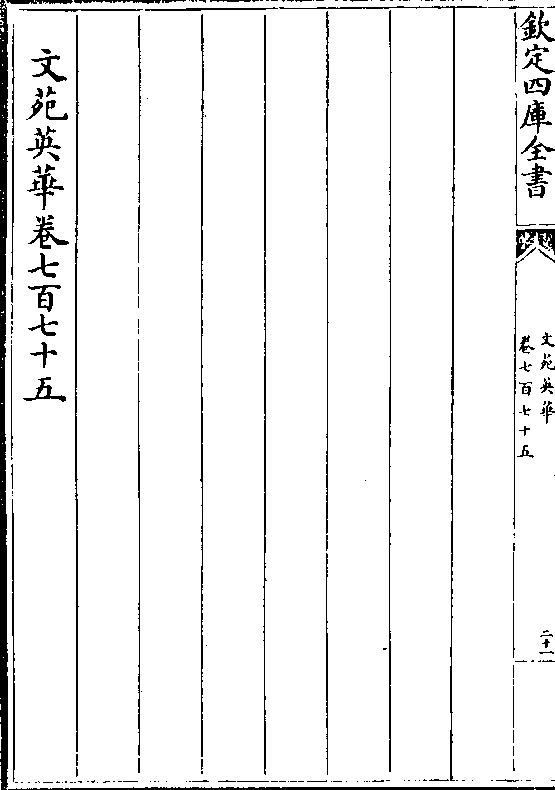 欽定四庫全書
文苑英華
卷七百七十五
二十一
文苑英華卷七百七十五